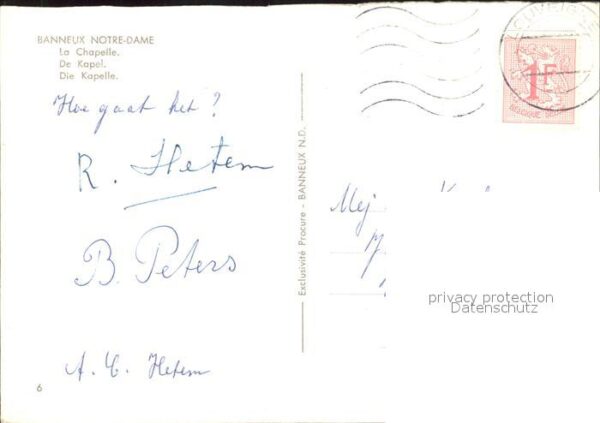 BANNEUX NOTRE-DAME
La Chapelle.
De Kapel.
Die Kapelle.
Hoe gaat het?
R. Hetem
B. Peters
A. C. Hetem
6
Exclusivité Procure - BANNEUX N.D.
1F
BELGIQUE BELGIE
Mej
privacy protection
Datenschutz